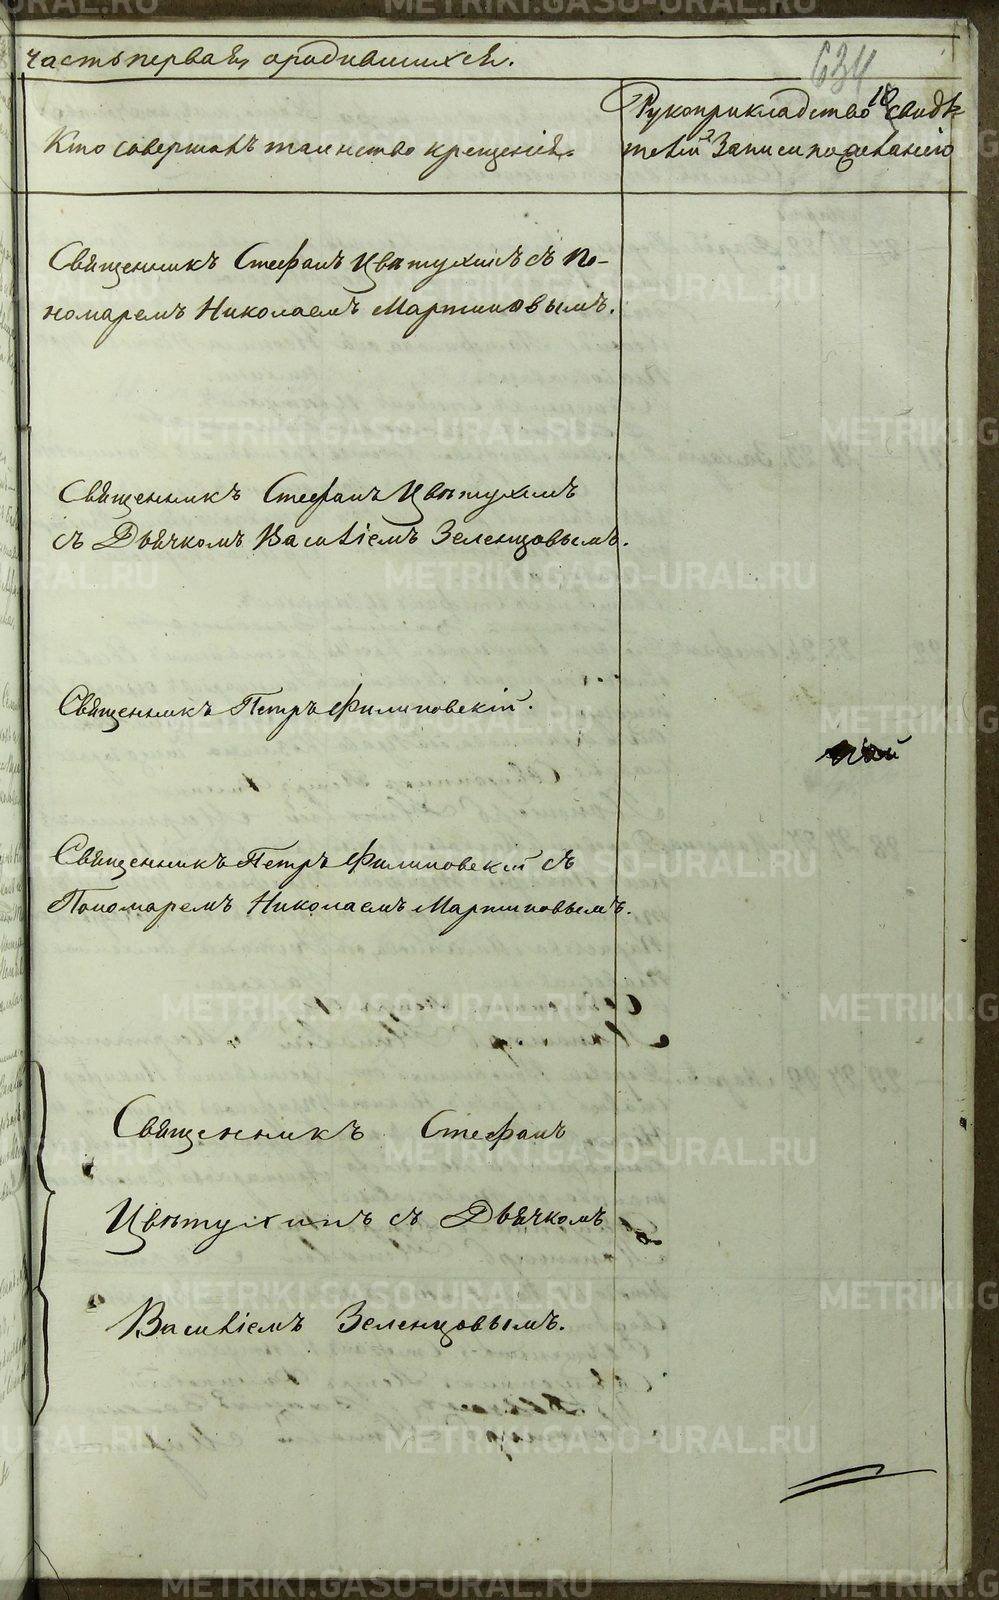 часть первая, о родившихся.
634
Кто совершалъ таинство крещенія.
Рукоприкладство свидѣ-
телей записи по желанію
Священникъ Стефанъ Цвѣтухинъ съ По-
номаремъ Николаемъ Мартиновымъ.
Священникъ Стефанъ Цвѣтухинъ
съ Дьячкомъ Василіемъ Зеленцовымъ.
Священникъ Петръ Филиповскій.
Священникъ Петръ Филиповскій съ
Пономаремъ Николаемъ Мартиновымъ.
Священникъ Стефанъ
Цвѣтухинъ съ Дьячкомъ
Василіемъ Зеленцовымъ.
METRIKI.GASO-URAL.RU